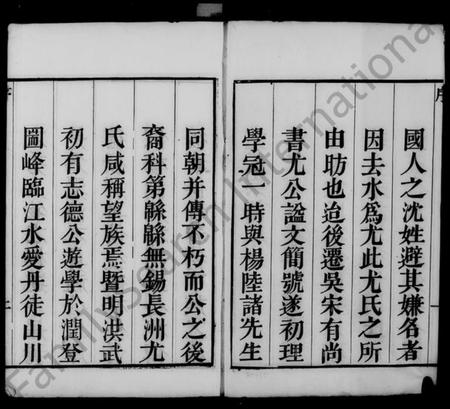 序
國人之沈姓避其嫌名者
因去水爲尤此尤氏之所
由昉也迨後遷吳宋有尚
書尤公諡文簡號遂初理
學冠一時與楊陸諸先生
同朝并傳不朽而公之後
裔科第緜緜無錫長洲尤
氏咸稱望族焉暨明洪武
初有志德公遊學於潤登
圖峰臨江水愛丹徒山川
FamilySearch International